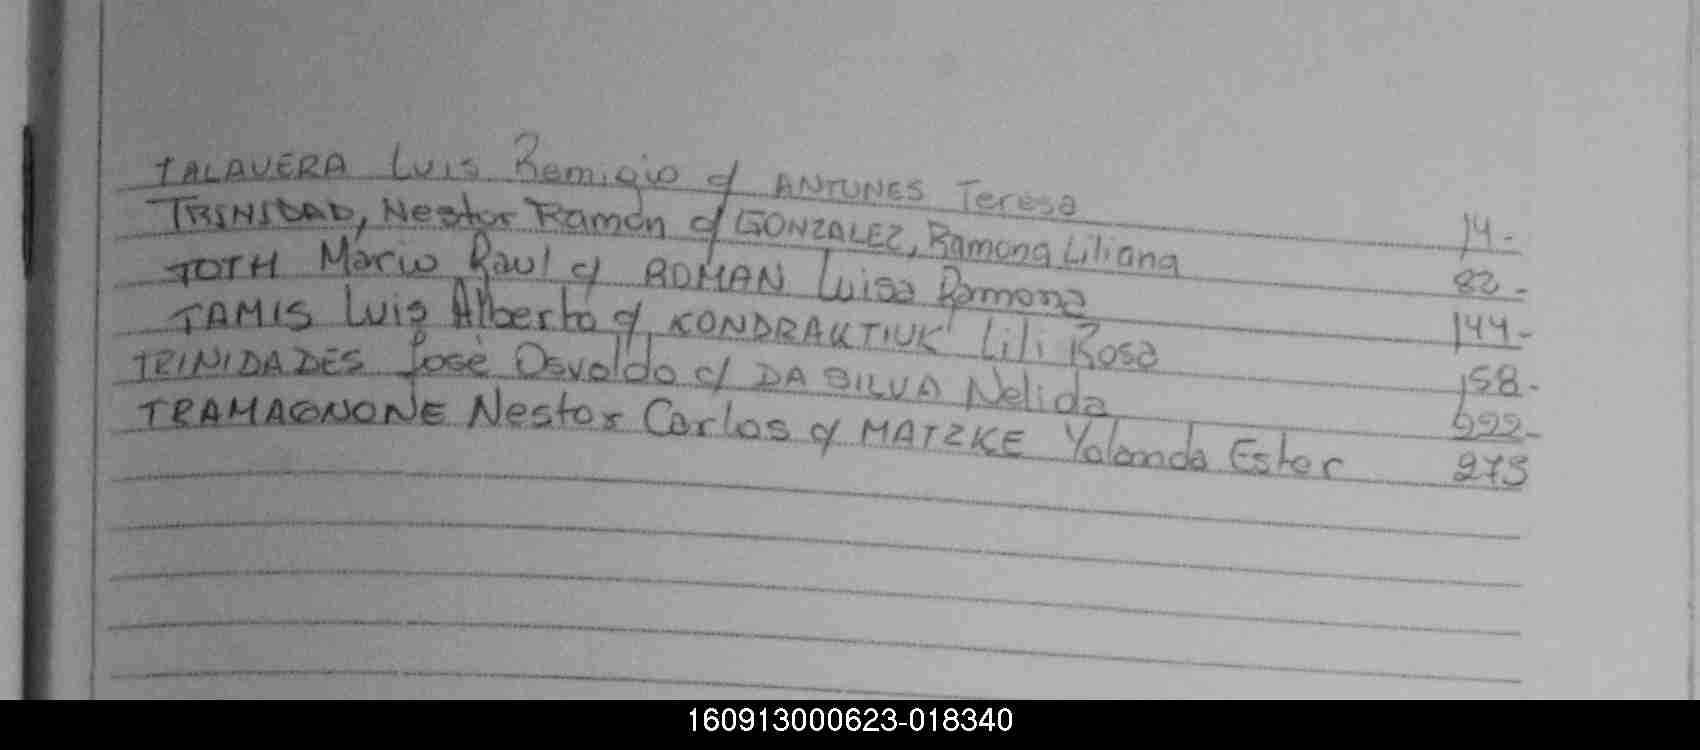 TALAVERA Luis Remigio c/ ANTUNES Teresa 14-
TRINIDAD, Nestor Ramón c/ GONZALEZ, Ramona Liliana 82-
TOTH Mario Raul c/ ROMAN Luisa Ramona 144-
TAMIS Luis Alberto c/ KONDRAKTIUK Lili Rosa 158-
TRINIDADES José Osvaldo c/ DA SILVA Nelida 222-
TRAMAGNONE Nestor Carlos c/ MATZKE Yolanda Ester 273
160913000623-018340